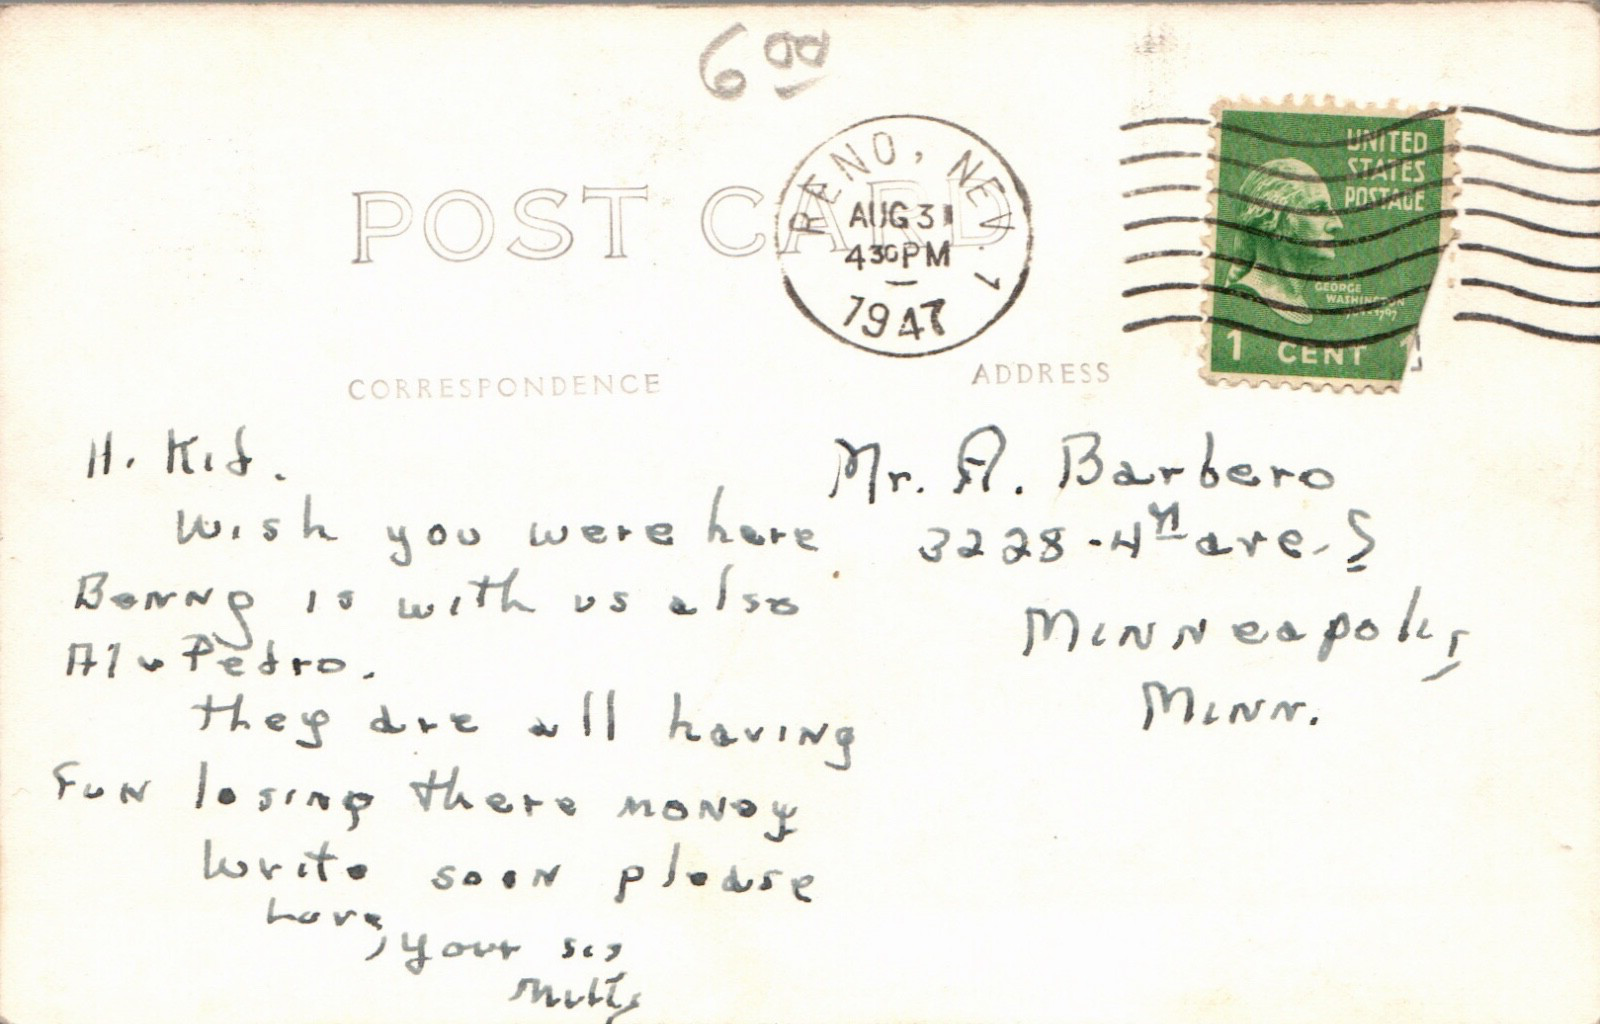 6 00
RENO, NEV. 1
AUG 31
4 30 PM
1947
UNITED
STATES
POSTAGE
GEORGE
WASHINGTON
1 CENT 1
POST CARD
CORRESPONDENCE
ADDRESS
H. Kid.
Wish you were here
Benny is with us also
Al + Pedro.
they are all having
fun losing there money
Write soon please
Love,
your sis
Mr. A. Barbero
3228 - 4th ave. S
Minneapolis,
Minn.